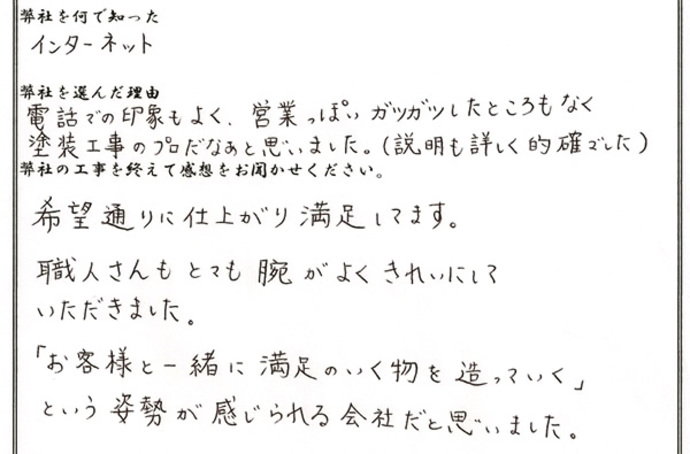 弊社を何で知った
インターネット
弊社を選んだ理由
電話での印象もよく、営業っぽい ガツガツしたところもなく
塗装工事のプロだなあと思いました。(説明も詳しく的確でした)
弊社の工事を終えて感想をお聞かせください。
希望通りに仕上がり満足してます。
職人さんもとても腕がよくきれいにして
いただきました。
「お客様と一緒に満足のいく物を造っていく」
という姿勢が感じられる会社だと思いました。